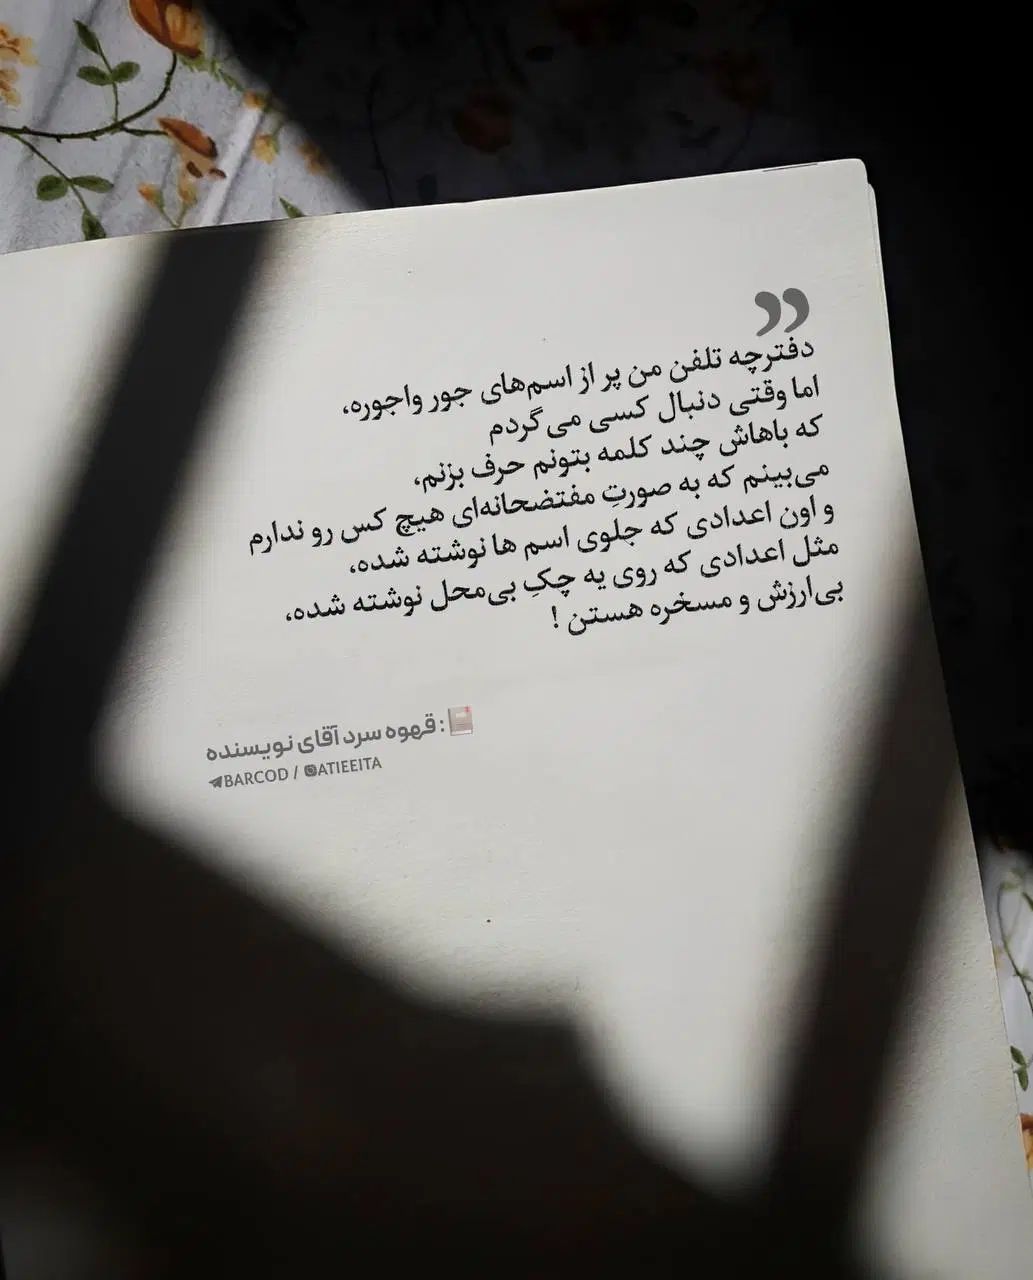 ”
دفترچه تلفن من پر از اسم‌های جور واجوره،
اما وقتی دنبال کسی می‌گردم
که باهاش چند کلمه بتونم حرف بزنم،
می‌بینم که به صورتِ مفتضحانه‌ای هیچ کس رو ندارم
و اون اعدادی که جلوی اسم ها نوشته شده،
مثل اعدادی که روی یه چکِ بی‌محل نوشته شده،
بی‌ارزش و مسخره هستن !
📕: قهوه سرد آقای نویسنده
BARCOD / @ATIEEITA